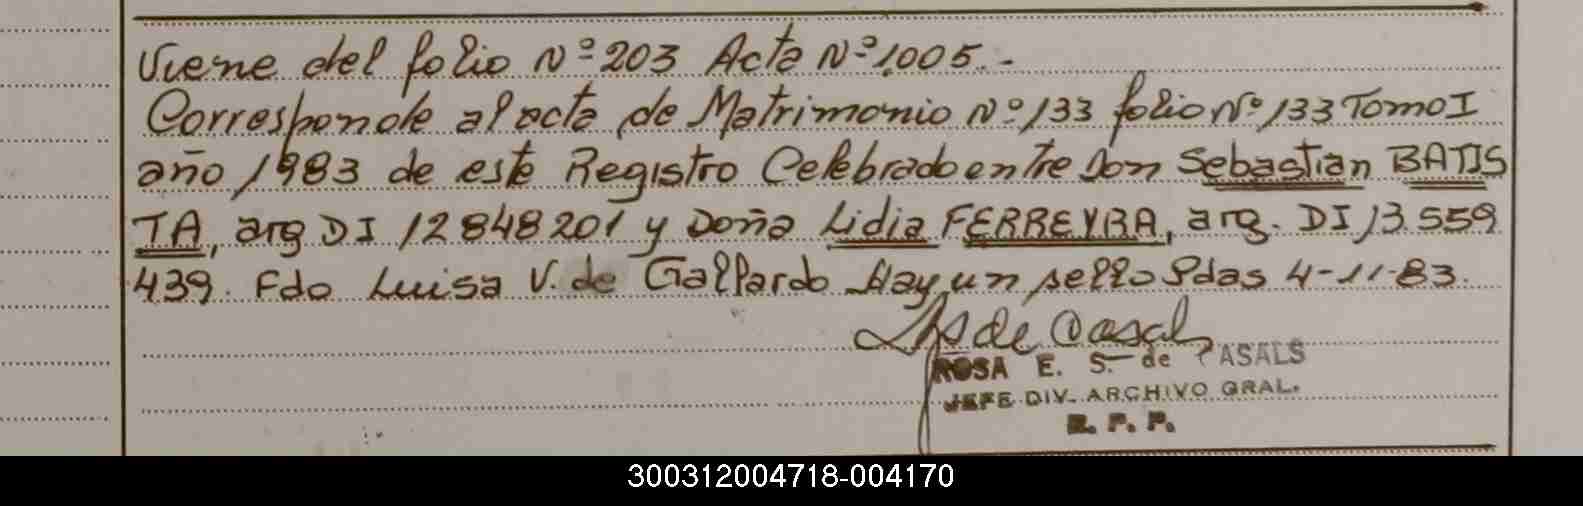 Viene del folio Nº 203 Acta Nº 1.005.-
Corresponde al acta de Matrimonio Nº 133 folio Nº 133 Tomo I
año 1983 de este Registro Celebrado entre Don Sebastian BATIS
TA, arg DI 12848201 y Doña Lidia FERREYRA, arg. DI 13.559
439. Fdo Luisa V. de Gallardo Hay un sello Pdas 4-11-83.
ROSA E. S. de CASALS
JEFE DIV. ARCHIVO GRAL.
R. P. P.
300312004718-004170